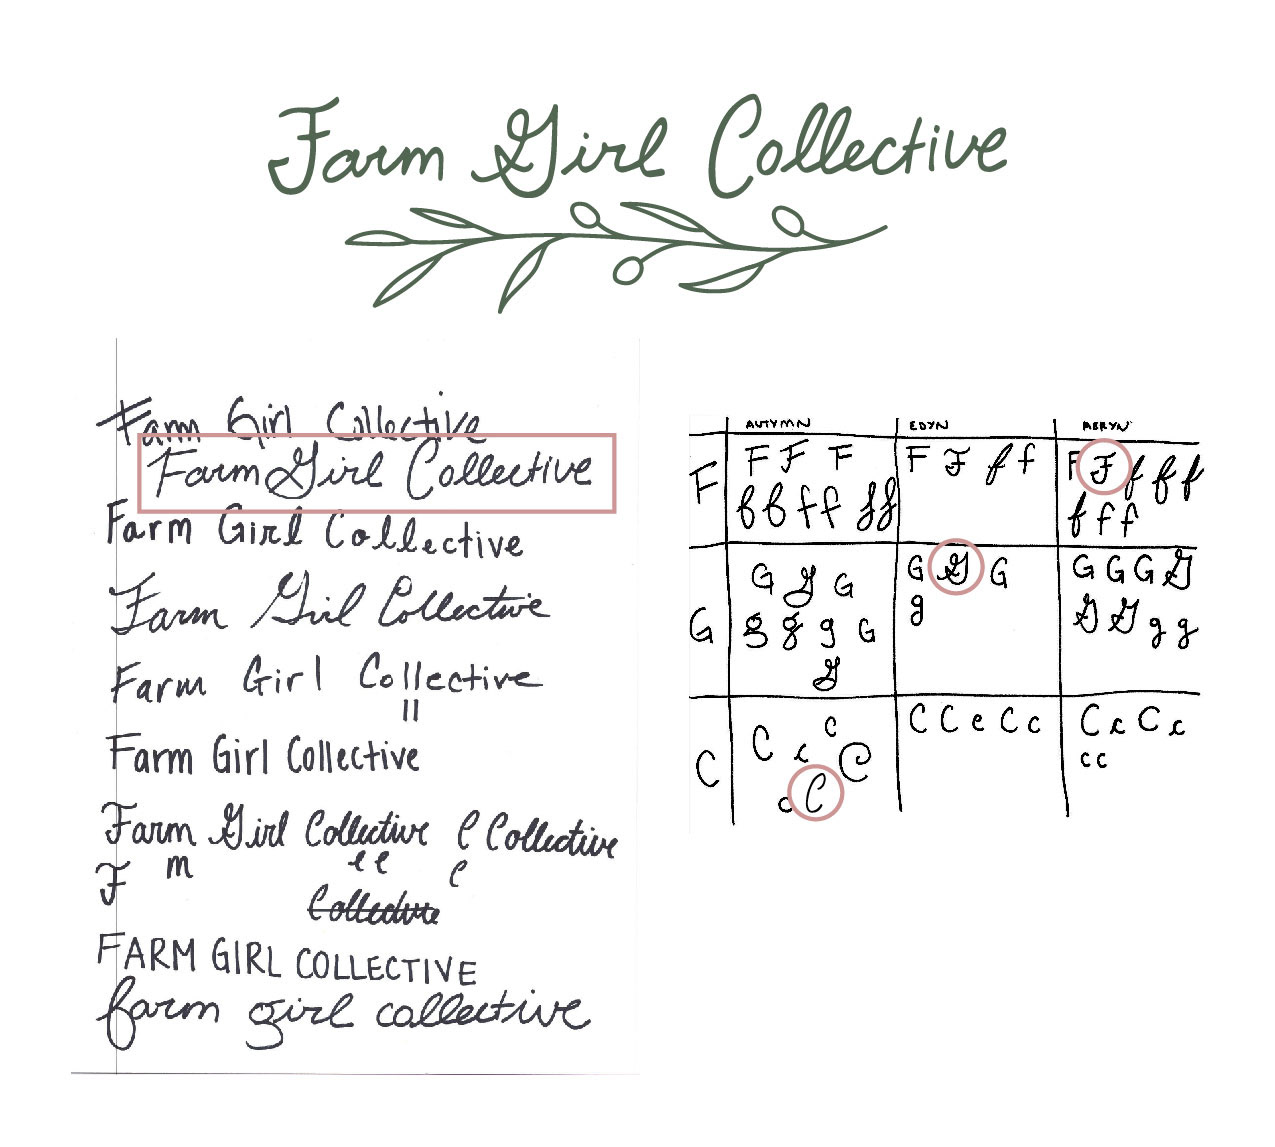 Farm Girl Collective
Farm Girl Collective
Farm Girl Collective
Farm Girl Collective
Farm Girl Collective
Farm Girl Collective
Farm Girl Collective
Farm Girl Collective C Collective
F m e e C
Collective
FARM GIRL COLLECTIVE
farm girl collective
AUTYMN EDYN AERYN
F F F F F F f f F F f f f
f f f f f f f f f
G G G G G G G G G G G
g g g G g G G g g
G
C C c c C C C c C c C c C c
c C c c